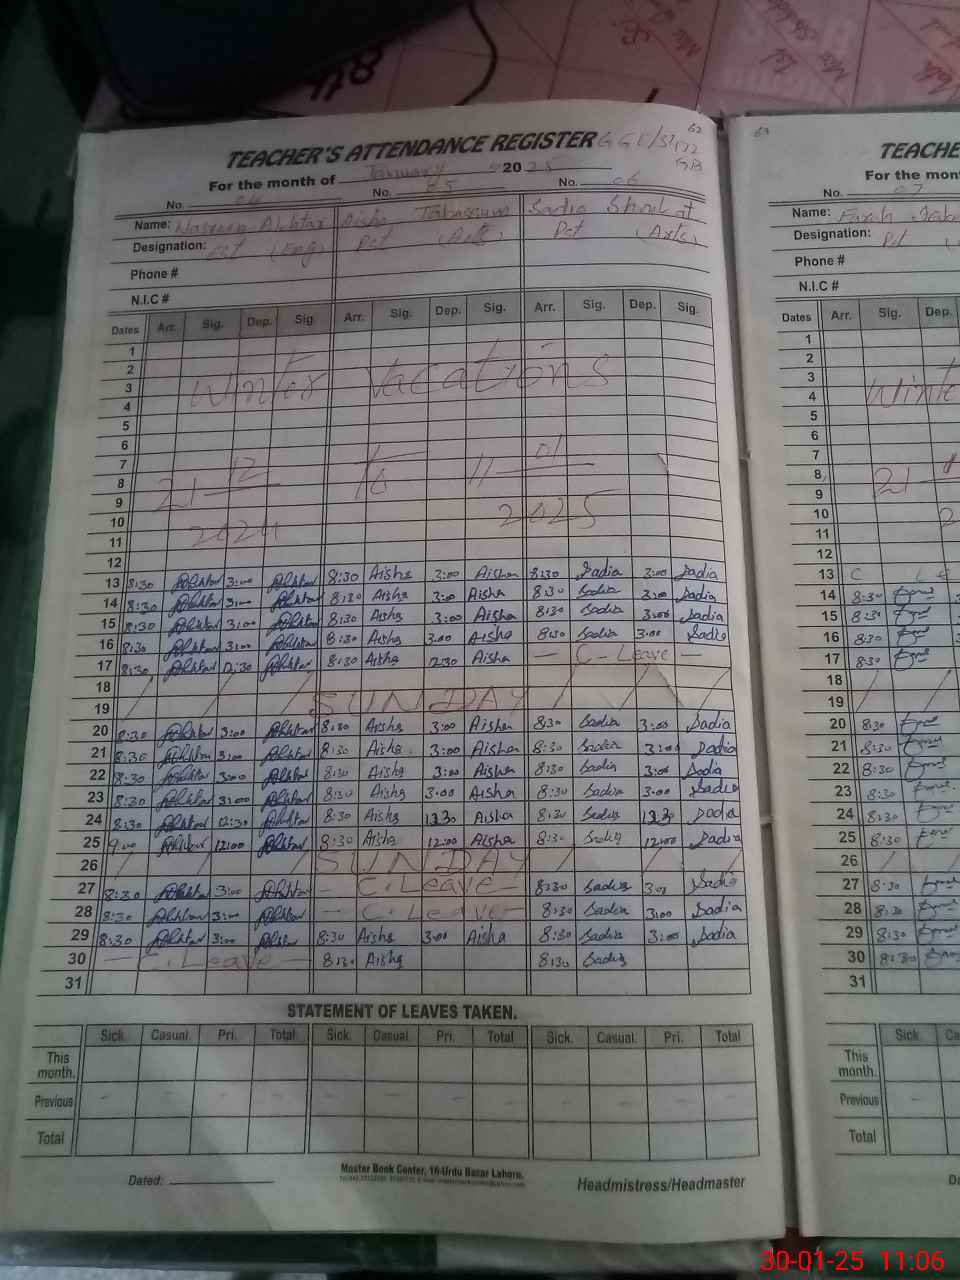 62
TEACHER'S ATTENDANCE REGISTER
For the month of January 2025
No. 04 No. 05 No. 06
Name: Nasreen Akhtar Aisha Tabassum Sadia Shoukat
Designation: (Eng) Pct (Arts) Pct (Arts)
Phone #
N.I.C #
Dates Arr. Sig. Dep. Sig. Arr. Sig. Dep. Sig. Arr. Sig. Dep. Sig.
1
2
3 Winter Vacations
4
5
6
7
8 21 12 to 11 01
9
10 2024 2025
11
12
13 8:30 Akhtar 3:00 Akhtar 8:30 Aisha 3:00 Aisha 8:30 Sadia 3:00 Sadia
14 8:30 Akhtar 3:00 Akhtar 8:30 Aisha 3:00 Aisha 8:30 Sadia 3:00 Sadia
15 8:30 Akhtar 3:00 Akhtar 8:30 Aisha 3:00 Aisha 8:30 Sadia 3:00 Sadia
16 8:30 Akhtar 3:00 Akhtar 8:30 Aisha 3:00 Aisha 8:30 Sadia 3:00 Sadia
17 8:30 Akhtar 12:30 Akhtar 8:30 Aisha 12:30 Aisha — C. Leave —
18
19 SUNDAY
20 8:30 Akhtar 3:00 Akhtar 8:30 Aisha 3:00 Aisha 8:30 Sadia 3:00 Sadia
21 8:30 Akhtar 3:00 Akhtar 8:30 Aisha 3:00 Aisha 8:30 Sadia 3:00 Sadia
22 8:30 Akhtar 3:00 Akhtar 8:30 Aisha 3:00 Aisha 8:30 Sadia 3:00 Sadia
23 8:30 Akhtar 3:00 Akhtar 8:30 Aisha 3:00 Aisha 8:30 Sadia 3:00 Sadia
24 8:30 Akhtar 12:30 Akhtar 8:30 Aisha Aisha 8:30 Sadia Sadia
25 9:00 Akhtar 12:00 Akhtar 8:30 Aisha 12:00 Aisha 8:30 Sadia 12:00 Sadia
26 SUNDAY
27 8:30 Akhtar 3:00 Akhtar — C. Leave — 8:30 Sadia Sadia
28 8:30 Akhtar 3:00 Akhtar — C. Leave — 8:30 Sadia 3:00 Sadia
29 8:30 Akhtar 3:00 Akhtar 8:30 Aisha 3:00 Aisha 8:30 Sadia 3:00 Sadia
30 — C. Leave — 8:30 Aisha 8:30 Sadia
31
STATEMENT OF LEAVES TAKEN.
Sick. Casual. Pri. Total. Sick. Casual. Pri. Total Sick. Casual. Pri. Total
This month.
Previous - - - - - - - - - - -
Total
Dated:
Master Book Center, 16-Urdu Bazar Lahore.
Headmistress/Headmaster
63
TEACHE
For the mont
No. 07
Name: Farah
Designation:
Phone #
N.I.C #
Dates Arr. Sig. Dep.
1
2
3
4 Winte
5
6
7
8 21
9
10 2
11
12
13 C Le
14 8:30
15 8:30
16 8:30
17 8:30
18
19
20 8:30
21 8:30
22 8:30
23 8:30
24 8:30
25 8:30
26
27 8:30
28 8:30
29 8:30
30 8:30
31
Sick. Ca
This month.
Previous - -
Total
8th
30-01-25 11:06